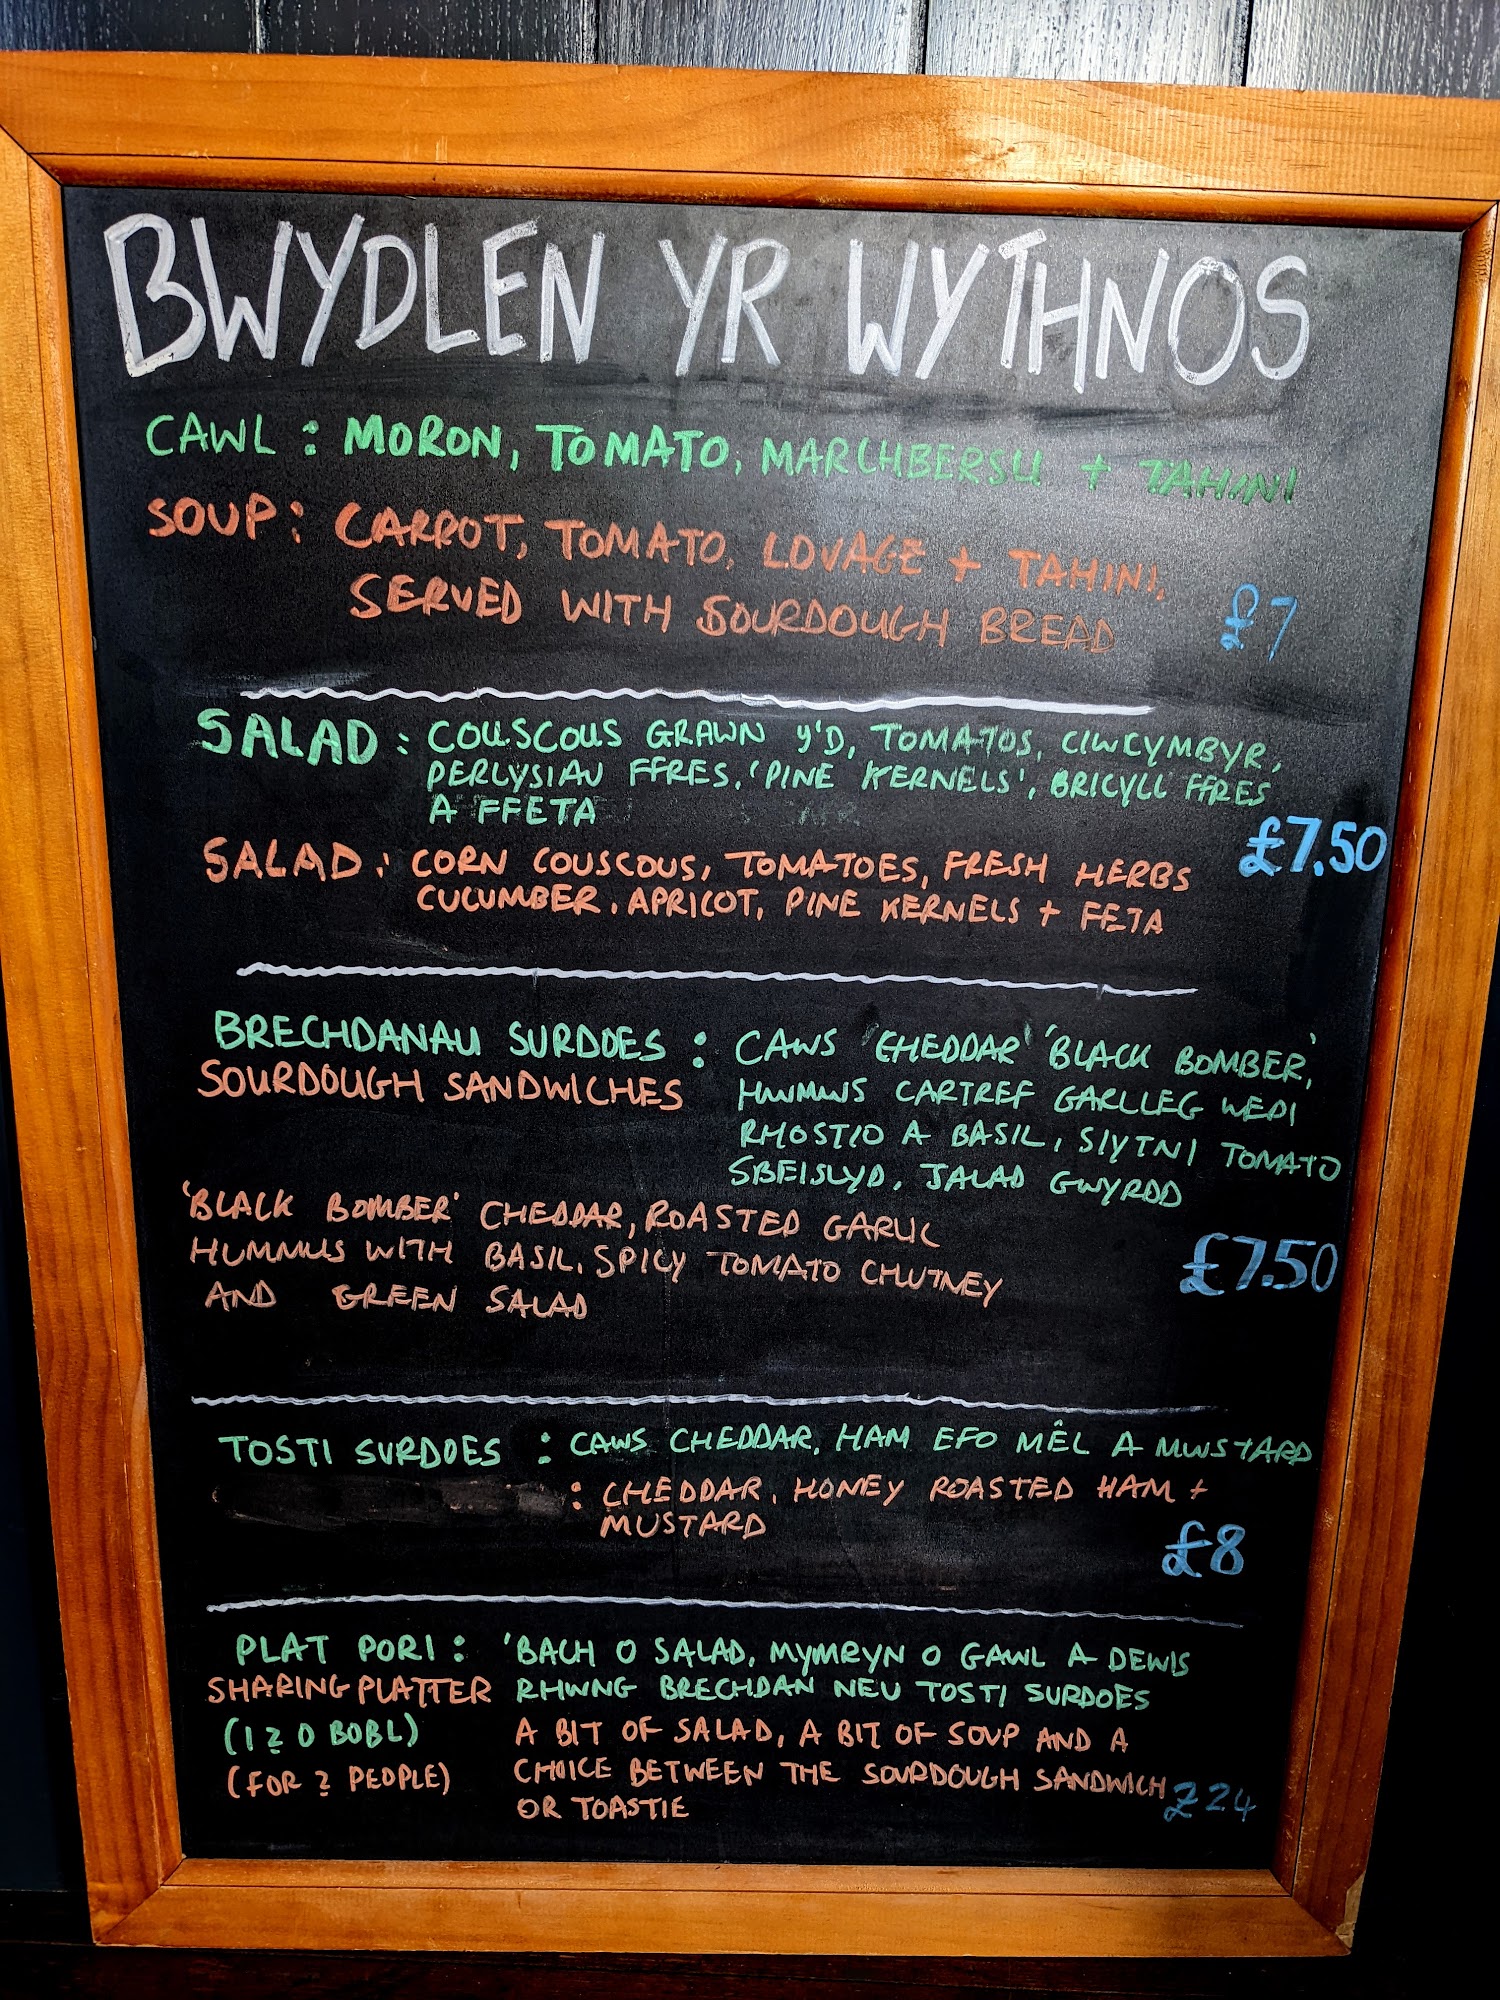 BWYDLEN YR WYTHNOS
CAWL : MORON, TOMATO, MARCHBERSLI + TAHINI
SOUP : CARROT, TOMATO, LOVAGE + TAHINI,
SERVED WITH SOURDOUGH BREAD £7
SALAD : COUSCOUS GRAWN Y'D, TOMATOS, CIWCYMBYR,
PERLYSIAU FFRES, 'PINE KERNELS', BRICYLL FFRES
A FFETA
£7.50
SALAD : CORN COUSCOUS, TOMATOES, FRESH HERBS
CUCUMBER, APRICOT, PINE KERNELS + FETA
BRECHDANAU SURDOES : CAWS 'CHEDDAR' 'BLACK BOMBER',
SOURDOUGH SANDWICHES
HWMWS CARTREF GARLLEG WEDI
RHOSTIO A BASIL, SIYTNI TOMATO
SBEISLYD, SALAD GWYRDD
'BLACK BOMBER' CHEDDAR, ROASTED GARLIC
HUMMUS WITH BASIL, SPICY TOMATO CHUTNEY
AND GREEN SALAD
£7.50
TOSTI SURDOES : CAWS CHEDDAR, HAM EFO MÊL A MWSTARD
: CHEDDAR, HONEY ROASTED HAM +
MUSTARD
£8
PLAT PORI : 'BACH O SALAD, MYMRYN O GAWL A DEWIS
SHARING PLATTER RHWNG BRECHDAN NEU TOSTI SURDOES
(I 2 O BOBL) A BIT OF SALAD, A BIT OF SOUP AND A
(FOR 2 PEOPLE) CHOICE BETWEEN THE SOURDOUGH SANDWICH
OR TOASTIE £24